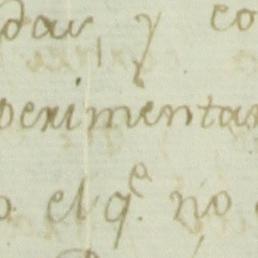 dar, y co
perimentar
o el q.e no